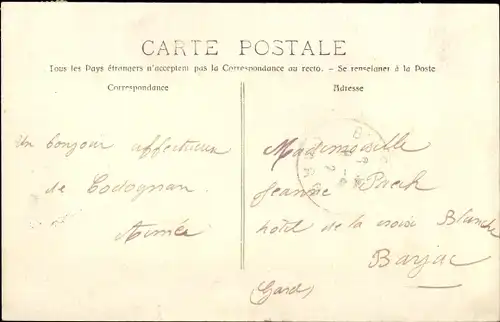 CARTE POSTALE
Tous les Pays étrangers n'acceptent pas la Correspondance au recto. - Se renseigner à la Poste
Correspondance
Adresse
Un bonjour affectueux
de Codognan
Aimée
Mademoiselle
Jeanne
hôtel de la croix Blanche
Barjac
(Gard)